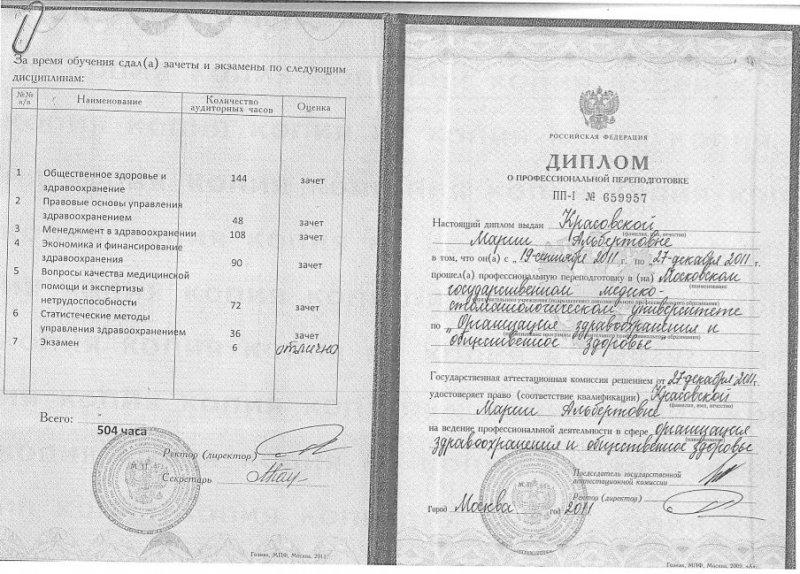 За время обучения сдал(а) зачеты и экзамены по следующим
дисциплинам:
№№ п/п Наименование Количество аудиторных часов Оценка
1 Общественное здоровье и здравоохранение 144 зачет
2 Правовые основы управления здравоохранением 48 зачет
3 Менеджмент в здравоохранении 108 зачет
4 Экономика и финансирование здравоохранения 90 зачет
5 Вопросы качества медицинской помощи и экспертизы нетрудоспособности 72 зачет
6 Статистические методы управления здравоохранением 36 зачет
7 Экзамен 6 отлично
Всего:
504 часа
Ректор (директор)
Секретарь
Гознак, МПФ, Москва, 2011.
РОССИЙСКАЯ ФЕДЕРАЦИЯ
ДИПЛОМ
О ПРОФЕССИОНАЛЬНОЙ ПЕРЕПОДГОТОВКЕ
ПП-I № 659957
Настоящий диплом выдан Красовской
(фамилия, имя, отчество)
Марии Альбертовне
в том, что он(а) с „19 сентября 2011 г. по „27 декабря 2011 г.
прошел(а) профессиональную переподготовку в (на) Московском
государственном медико-
стоматологическом университете
по „Организация здравоохранения и
общественное здоровье
Государственная аттестационная комиссия решением от 27 декабря 2011.
удостоверяет право (соответствие квалификации) Красовской
(фамилия, имя, отчество)
Марии Альбертовне
на ведение профессиональной деятельности в сфере организация
здравоохранения и общественное здоровье
Председатель государственной
аттестационной комиссии
Ректор (директор)
Город Москва год 2011
Гознак, МПФ, Москва, 2009. «А».